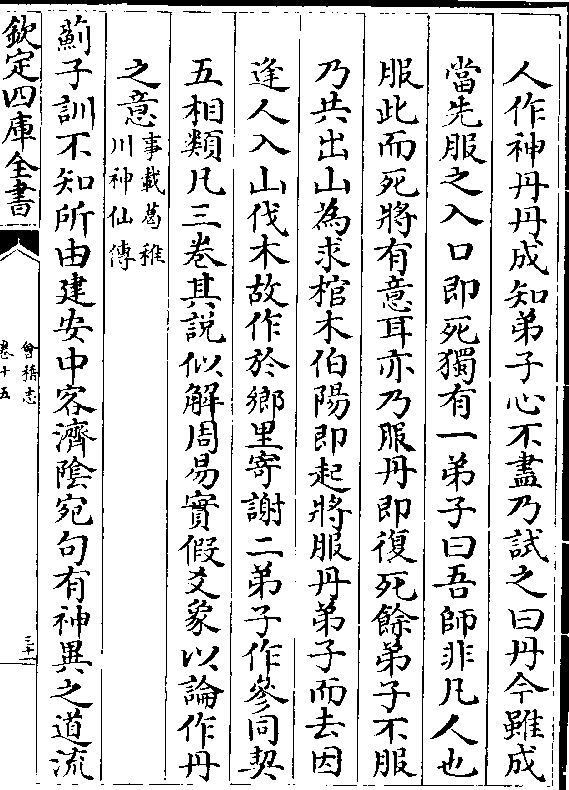 人作神丹丹成知弟子心不盡乃試之曰丹今雖成
當先服之入口即死獨有一弟子曰吾師非凡人也
服此而死將有意耳亦乃服丹即復死餘弟子不服
乃共出山為求棺木伯陽即起將服丹弟子而去因
逢人入山伐木故作於鄉里寄謝二弟子作參同契
五相類凡三卷其說似解周易實假爻象以論作丹
之意事載葛稚川神仙傳
薊子訓不知所由建安中客濟陰宛句有神異之道流
欽定四庫全書
會稽志
卷十五
三十一